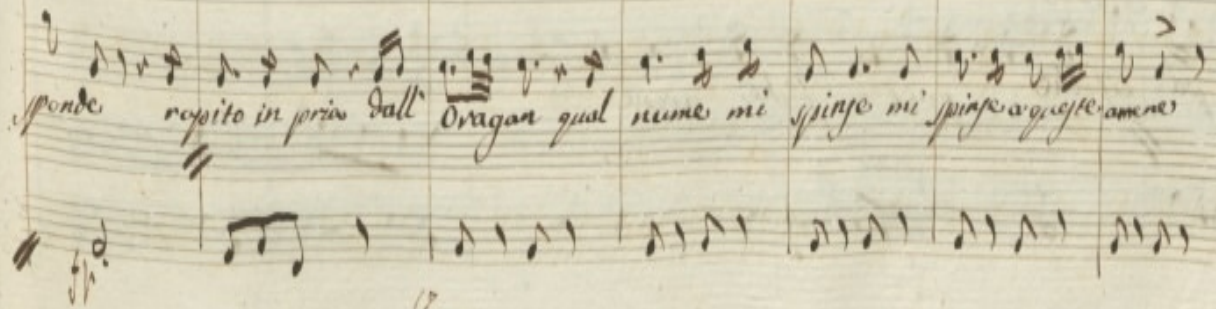 sponde rapito in pria dall' Oragan qual nume mi spinse mi spinse a queste amene
fp.